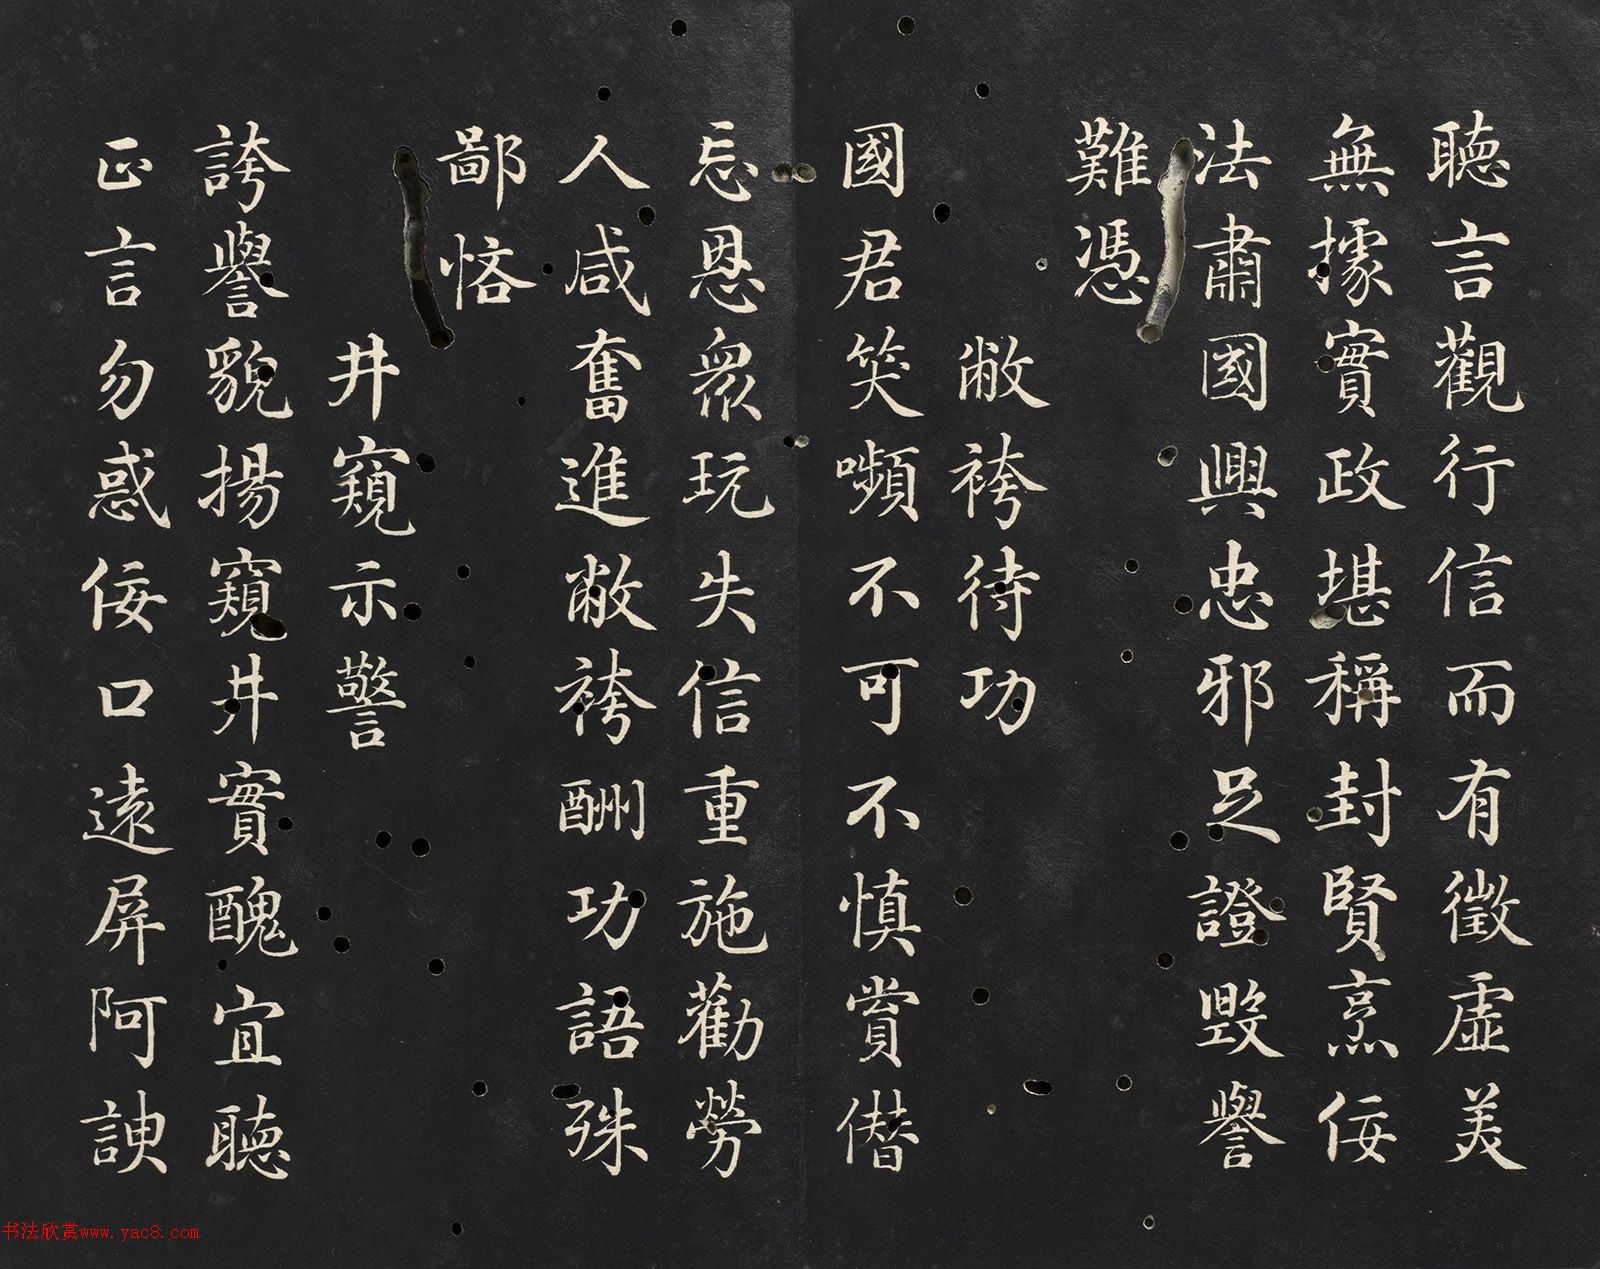 聽言觀行信而有徵虛美
無據實政堪稱封賢烹佞
法肅國興忠邪足證毀譽
難憑
敝袴待功
國君笑嚬不可不慎賞僭
忘恩衆玩失信重施勸勞
人咸奮進敝袴酬功語殊
鄙悋
井窺示警
誇譽貌揚窺井實醜宜聽
正言勿惑佞口遠屏阿諛
书法欣赏www.yac8.com